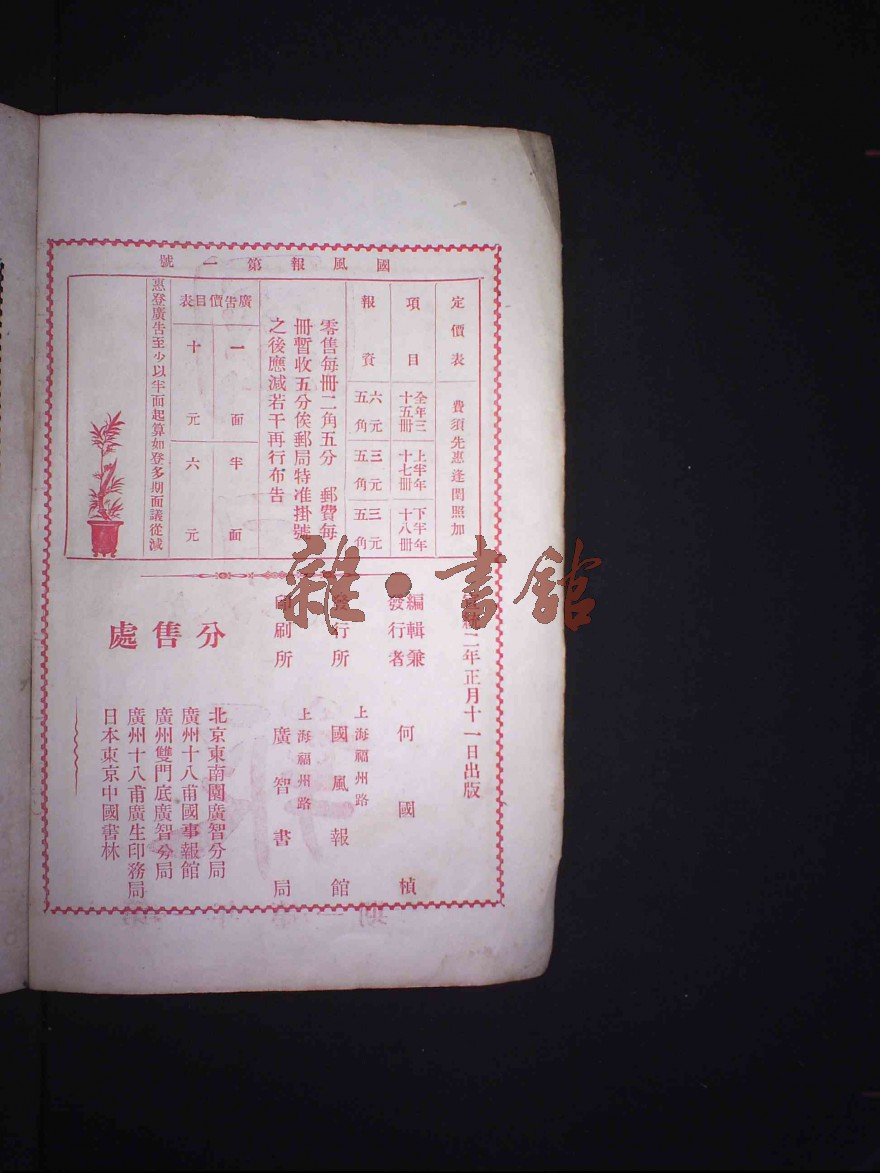 國風報第一號
定價表 費須先惠逢閏照加
項目 全年三十五冊 上半年十七冊 下半年十八冊
報資 六元五角 三元五角 三元五角
零售每冊二角五分 郵費每
冊暫收五分俟郵局特准掛號
之後應減若干再行布告
廣告價目表
一面 半面
十元 六元
惠登廣告至少以半面起算如登多期面議從減
宣統二年正月十一日出版
編輯兼發行者 何國楨
發行所 上海福州路 國風報館
印刷所 上海福州路 廣智書局
分售處
北京東南園廣智分局
廣州十八甫國事報館
廣州雙門底廣智分局
廣州十八甫廣生印務局
日本東京中國書林
雜·書館